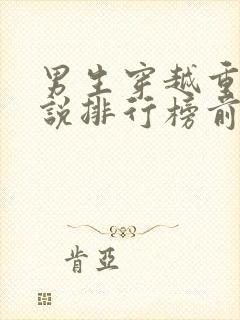 男生穿越重
說排行榜前
肯亞